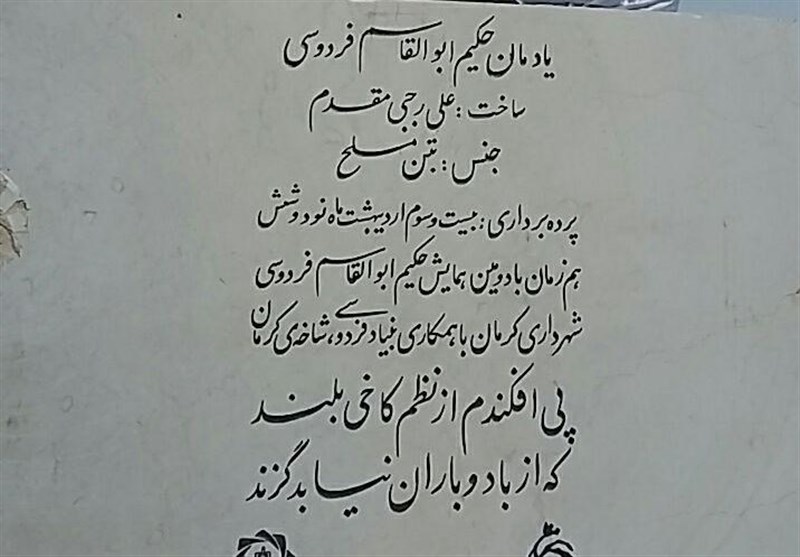 یادمان حکیم ابوالقاسم فردوسی
ساخت : علی رجبی مقدم
جنس : بتن مسلح
پرده برداری : بیست و سوم اردیبهشت ماه نود و شش
هم زمان با دومین همایش حکیم ابوالقاسم فردوسی
شهرداری کرمان با همکاری بنیاد فردوسی، شاخه‌ی کرمان
پی افکندم از نظم کاخی بلند
که از باد و باران نیابد گزند